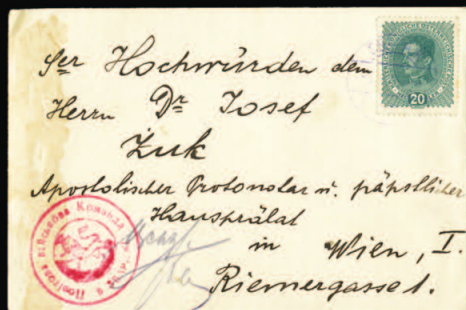 Ser Hochwürden dem
Herrn Dr Josef
Žuk
Apostolischer Protonotar u. päpstlicher
Hausprälat
in Wien, I.
Riemergasse 1.
20
Команда